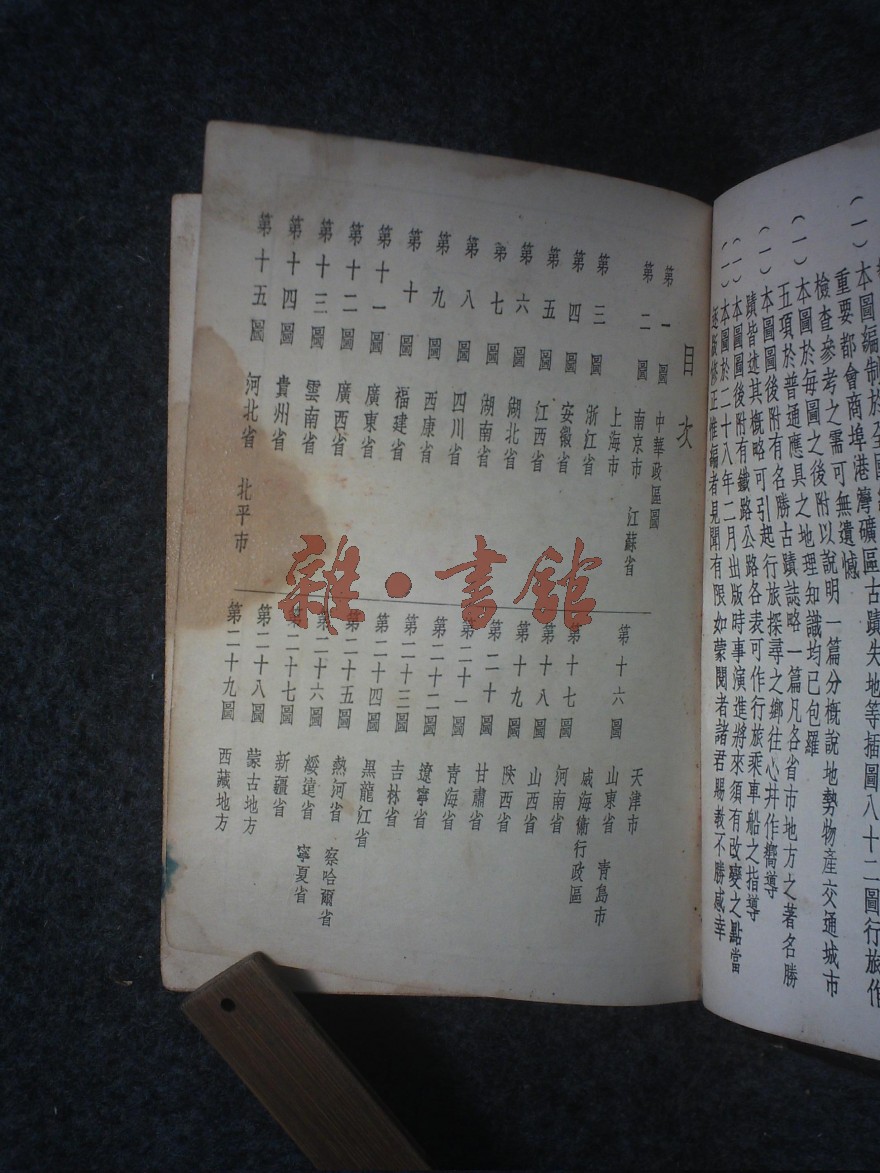 (一)本圖編制於全國
重要都會商埠港灣礦區古蹟失地等插圖八十二圖行旅作
檢查參考之需可無遺憾
(一)本圖於每圖之後附以說明一篇分概說地勢物產交通城市
五項於普通應具之地理知識均已包羅
(一)本圖圖後附有名勝古蹟誌略一篇凡各省市地方之著名勝
蹟皆述其概略可引起行旅探尋之鄉往心并作嚮導
(一)本圖圖後附有鐵路公路各表可作行旅乘車船之指導
(一)本圖於二十八年二月出版時事演進將來須有改變之點當
逐版修正惟編者見聞有限如蒙閱者諸君賜教不勝感幸
目次
第一圖 中華政區圖
第二圖 南京市 江蘇省
上海市
第三圖 浙江省
第四圖 安徽省
第五圖 江西省
第六圖 湖北省
第七圖 湖南省
第八圖 四川省
第九圖 西康省
第十圖 福建省
第十一圖 廣東省
第十二圖 廣西省
第十三圖 雲南省
第十四圖 貴州省
第十五圖 河北省 北平市
天津市
第十六圖 山東省 青島市
威海衛行政區
第十七圖 河南省
第十八圖 山西省
第十九圖 陝西省
第二十圖 甘肅省
第二十一圖 青海省
第二十二圖 遼寧省
第二十三圖 吉林省
第二十四圖 黑龍江省
第二十五圖 熱河省 察哈爾省
第二十六圖 綏遠省 寧夏省
第二十七圖 新疆省
第二十八圖 蒙古地方
第二十九圖 西藏地方
雜·書館